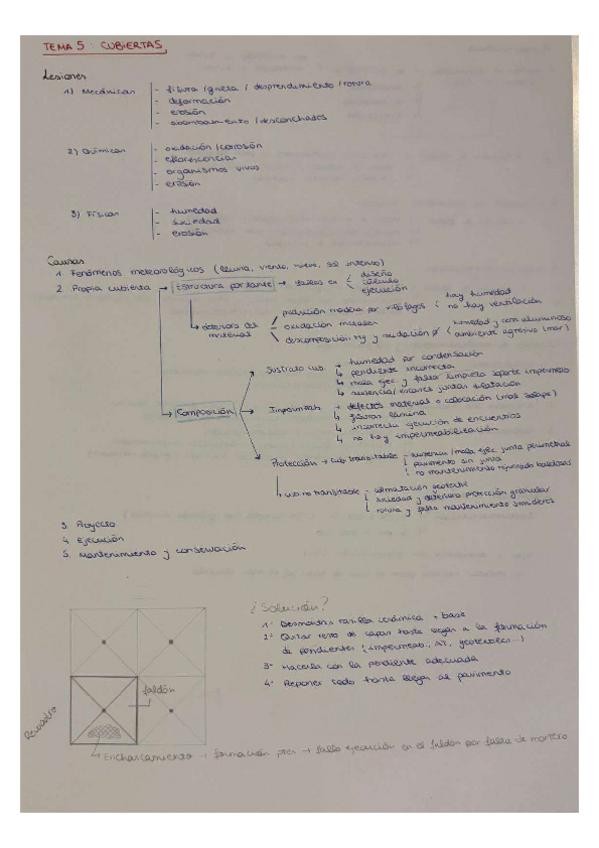 TEMA 5: CUBIERTAS
Lesiones
1) Mecánicas
- fisura/grieta / desprendimiento/rotura
- deformación
- erosión
- abombamiento/desconchados
2) Químicas
- oxidación/corrosión
- eflorescencias
- organismos vivos
- erosión
3) Físicas
- humedad
- suciedad
- erosión
Causas
1. Fenómenos meteorológicos (lluvia, viento, nieve, sol intenso)
2. Propia cubierta → Estructura portante → fallos en
diseño
cálculo
ejecución
→ deterioro del material
pudrición madera por xilófagos
hay humedad
no hay ventilación
- oxidación metales
descomposición Hº y oxidación Ø
humedad y cem aluminoso
ambiente agresivo (mar)
→ Composición
Sustrato cub.
→ humedad por condensación
→ pendiente incorrecta
→ mala ejec y falta limpieza soporte impermeab
→ ausencia/escasez juntas dilatación
Impermeab.
→ defectos material o colocación (mal solape)
→ fisuras lámina
→ incorrecta ejecución de encuentros
→ no hay impermeabilización
Protección → cub transitable
- ausencia/mala ejec. junta perimetral
pavimento sin junta
no mantenimiento rejuntado baldosas
→ cub no transitable
- colmatación geotextil
suciedad y deterioro protección granular
rotura y falta mantenimiento sumideros
3. Proyecto
4. Ejecución
5. Mantenimiento y conservación
¿Solución?
1º Desmontar rasilla cerámica + base
2º Quitar resto de capas hasta llegar a la formación
de pendientes (impermeab., AT, geotextiles...)
3º Hacerla con la pendiente adecuada
4º Reponer todo hasta llegar al pavimento
faldón
Encharcamiento → formación pten → fallo ejecución en el faldón por falta de mortero